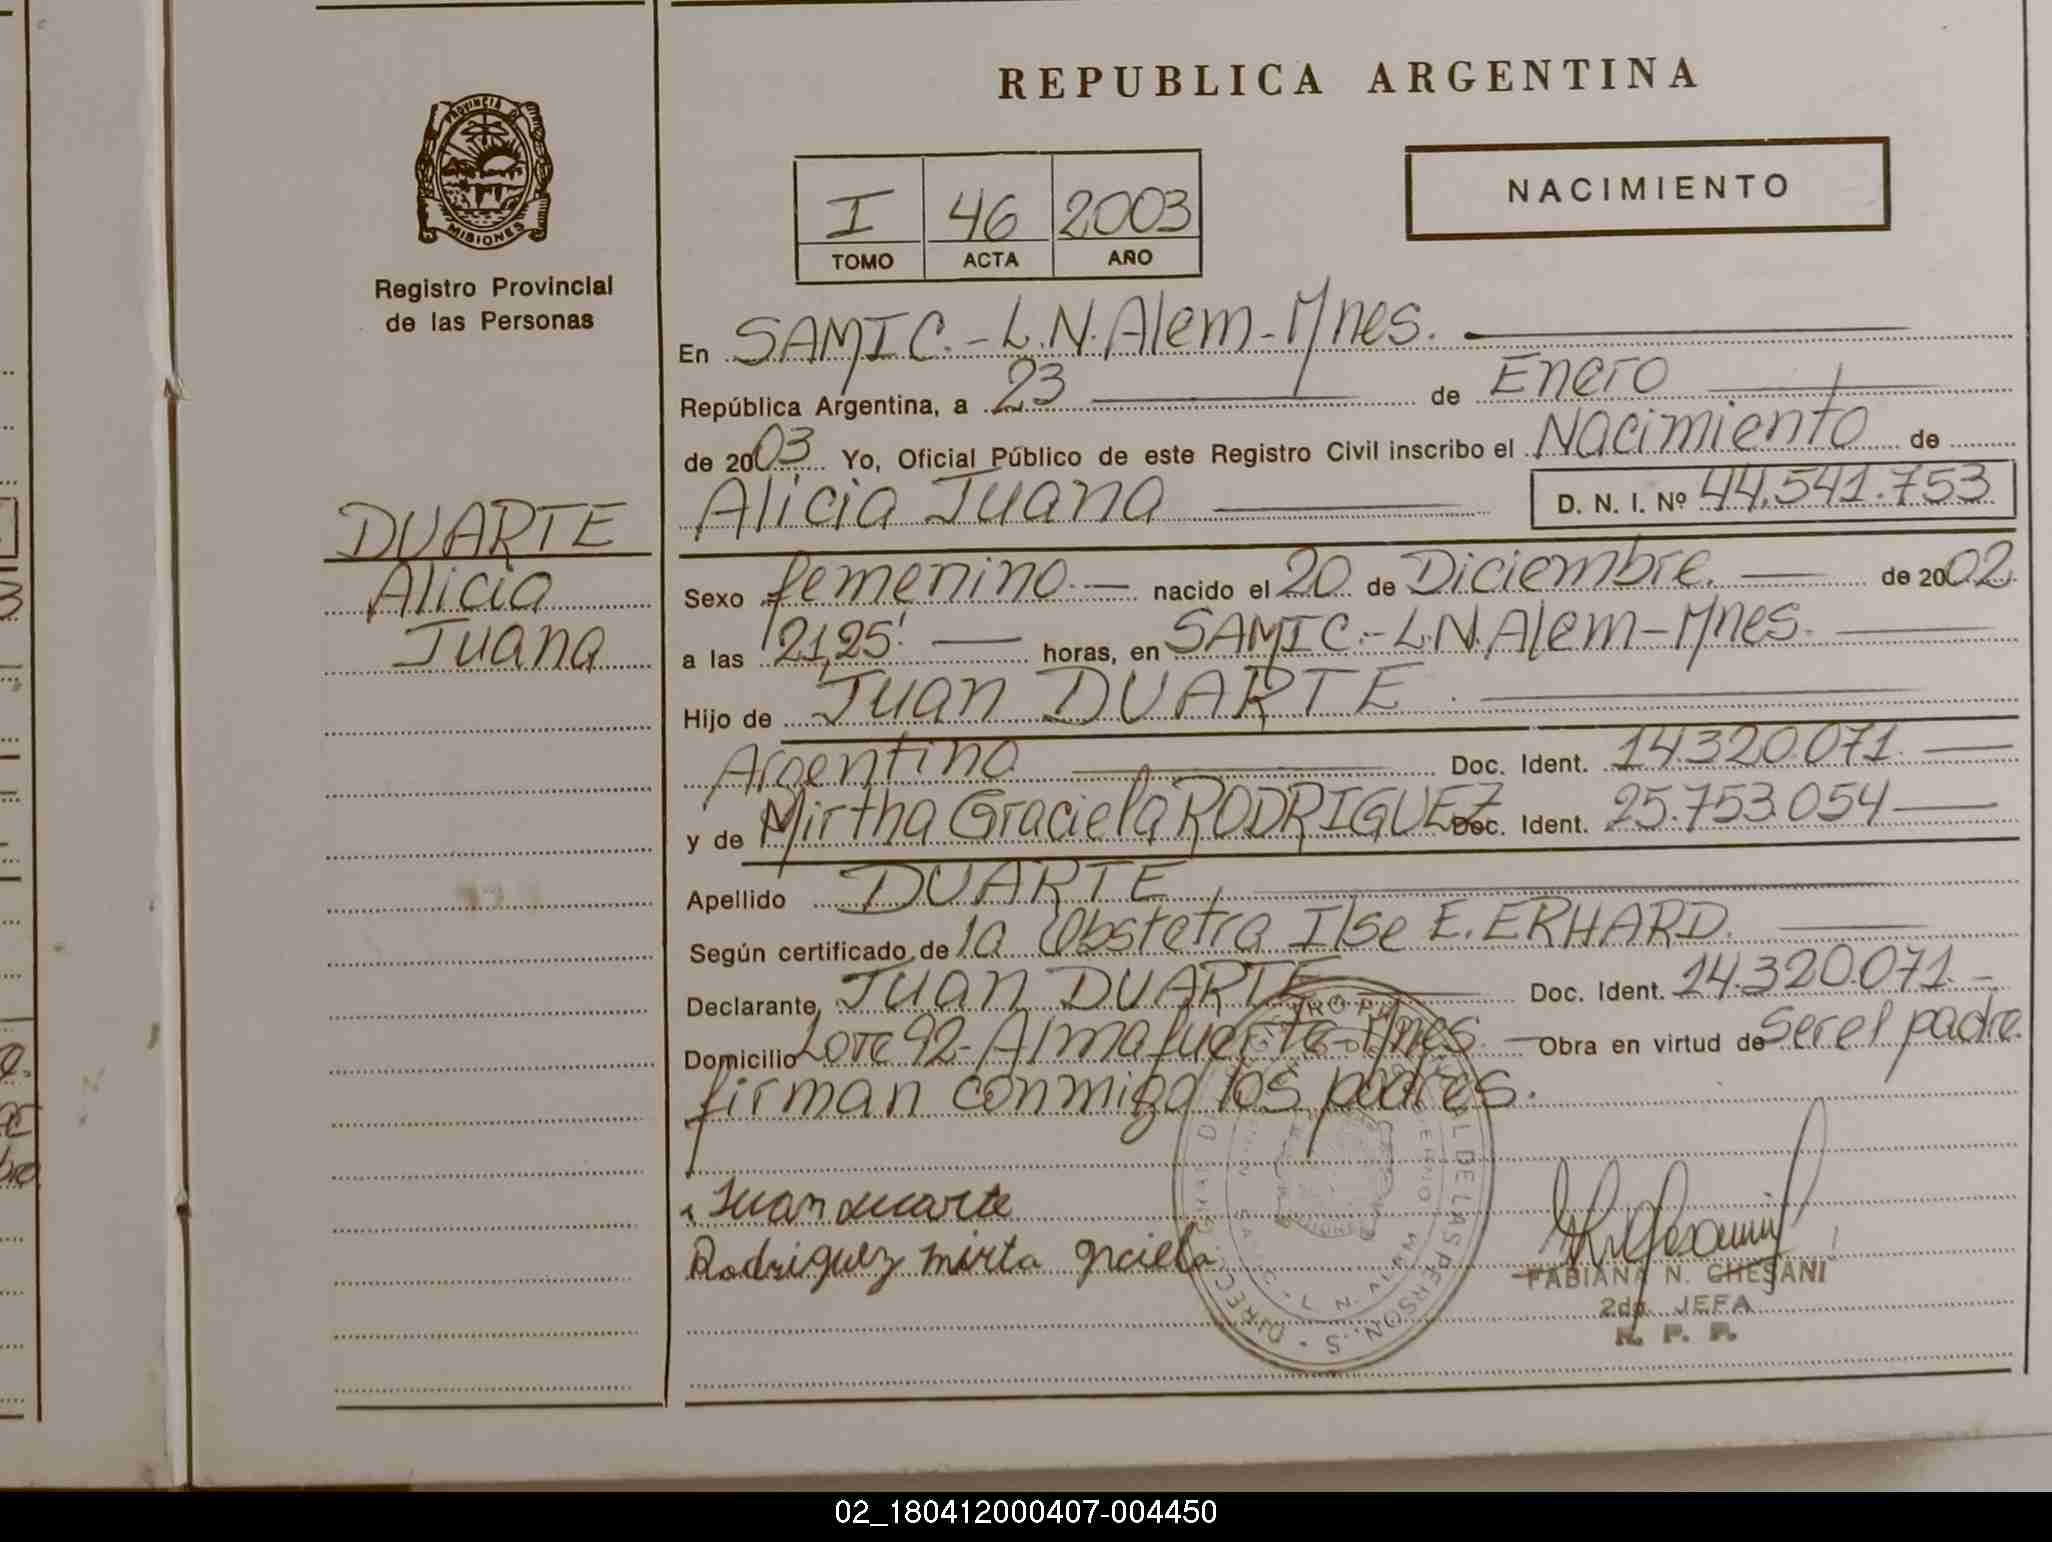 REPUBLICA ARGENTINA
PROVINCIA DE
MISIONES
Registro Provincial
de las Personas
I 46 2003
TOMO ACTA AÑO
NACIMIENTO
En SAMIC.-L.N.Alem-Mnes.
República Argentina, a 23 de Enero
de 2003 Yo, Oficial Público de este Registro Civil inscribo el Nacimiento de
Alicia Juana D. N. I. Nº 44.541.753
DUARTE
Alicia
Juana
Sexo femenino.- nacido el 20 de Diciembre. de 2002
a las 21,25' horas, en SAMIC.-L.N.Alem-Mnes.
Hijo de Juan DUARTE
Argentino Doc. Ident. 14.320.071.
y de Mirtha Graciela RODRIGUEZ Doc. Ident. 25.753.054
Apellido DUARTE
Según certificado de la Obstetra Ilse E. ERHARD.
Declarante Juan DUARTE Doc. Ident. 14.320.071.-
Domicilio Lote 92-Almafuerte-Mnes. Obra en virtud de ser el padre.
firman conmigo los padres.
Juan duarte
Rodriguez mirta graciela
FABIANA N. GHESANI
2da. JEFA
R. P. P.
02_180412000407-004450